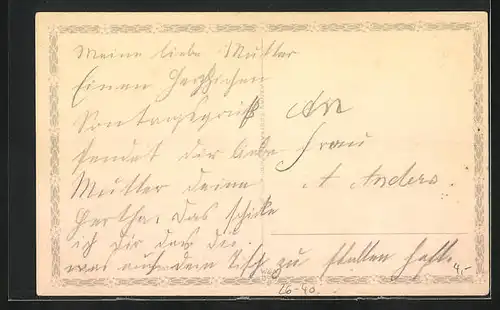 Meine liebe Mutter
Einen herzlichen
Sontagsgruß
sendet dir liebe
Mutter deine
Hertha. Das schicke
ich Dir das du
was auf dem Tisch zu stellen hast.
An
Frau
A Anders.
26-40.
4,-